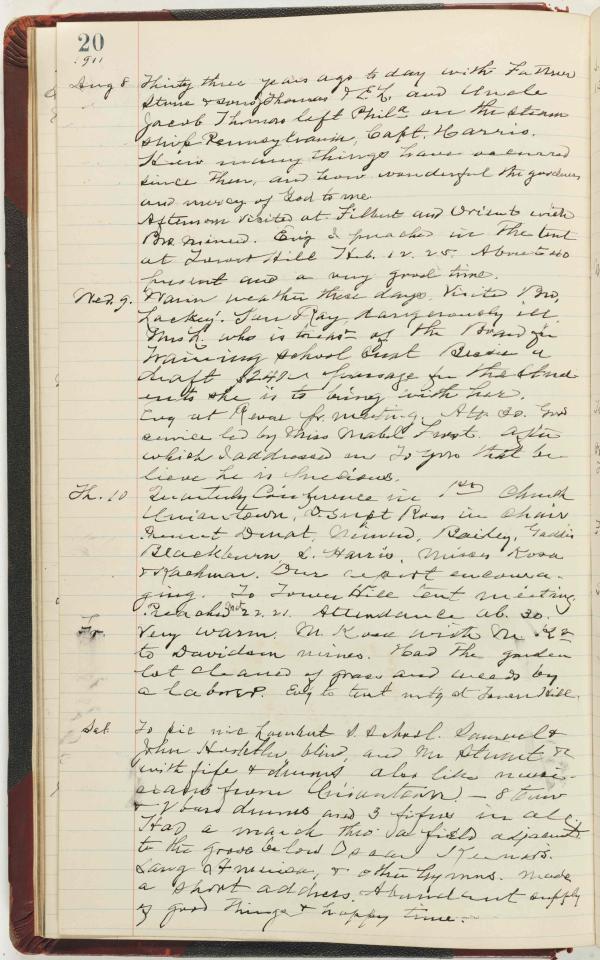 20
1911
Aug 8 Thirty three years ago to day with Father
Stone & sons Thomas & E.K. and Uncle
Jacob Thomas left Phila on the steam
ship Pennsylvania, Capt. Harris.
How many things have occurred
since then, and how wonderful the goodness
and mercy of God to me.
Afternoon visited at Filbert and Orient with
Bro. Minerd. Evg I preached in the tent
at Tower Hill Heb. 12.25. About 40
present and a very good time.
Wed. 9. Warm weather these days. Visited Bro.
Lackey. Son Ray dangerously ill.
Miss K. who is treas. of the Board for
Training school sent Bessie a
draft $240 passage for the stud
ents she is to bring with her.
Evg at Revere pr. meeting. Att. 30. Good
service led by Miss Mabel Frost. After
which I addressed on To you that be
lieve he is precious.
Th. 10 Quarterly Conference in 1st Church
Uniontown, D. Supt Ross in chair
Present Minerd, Bailey, Gaddis
Blackburn S. Harris, Misses Kosa
& Our report encoura-
ging. To Tower Hill tent meeting.
Preached 22.21. Attendance ab. 30.
Fr. Very warm. M. Kosa with
to Davidson mines. Had the garden
lot cleaned of grass and weeds by
a laborer. Evg to tent mtg at Tower Hill.
Sat. To pic nic S. School. Samuel &
John Hostetler blind, and Mr Stewart &c
with fife & drums also like musi-
cians from Uniontown. – 8 tenor
& V bass drums and 3 fifes in all.
Had a march thro' a field adjacent
to the grove below Oscar
Sang America, & other hymns. Made
a short address. Abundant supply
of good things & happy time.